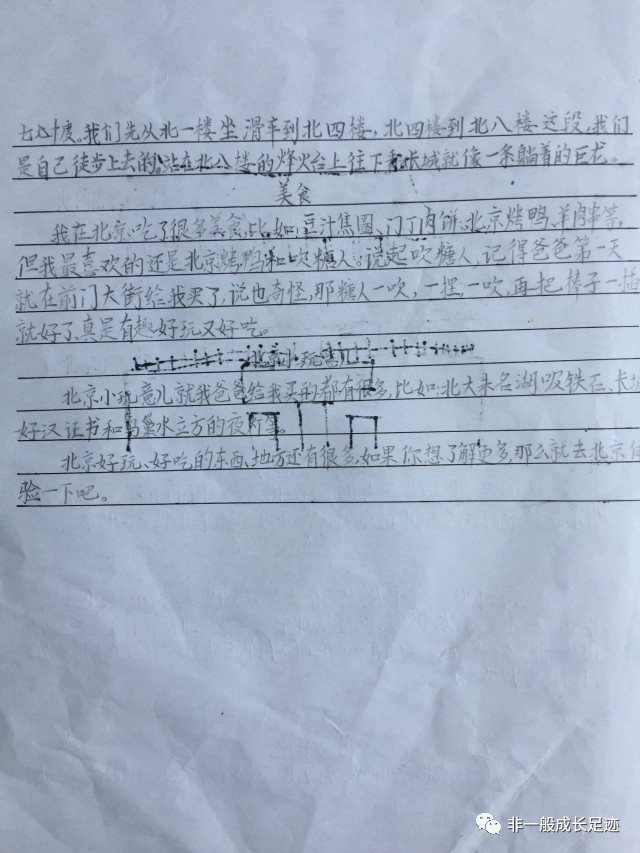 七八十度。我们先从北一楼坐滑车到北四楼，北四楼到北八楼这段，我们
是自己徒步上去的。站在北八楼的烽火台上往下看，长城就像一条躺着的巨龙。
美食
我在北京吃了很多美食，比如：豆汁焦圈、门丁肉饼、北京烤鸭、羊肉串等，
但我最喜欢的还是北京烤鸭和吹糖人。说起吹糖人，记得爸爸第一天
就在前门大街给我买了，说也奇怪，那糖人一吹，一捏，一吹，再把棒子一插
就好了，真是有趣，好玩又好吃。
北京小玩意儿
北京小玩意儿就我爸爸给我买的都有很多，比如：北大未名湖吸铁石、长城
好汉证书和鸟巢水立方的夜灯
北京好玩、好吃的东西、地方还有很多，如果你想了解更多，那么就去北京
验一下吧。
非一般成长足迹